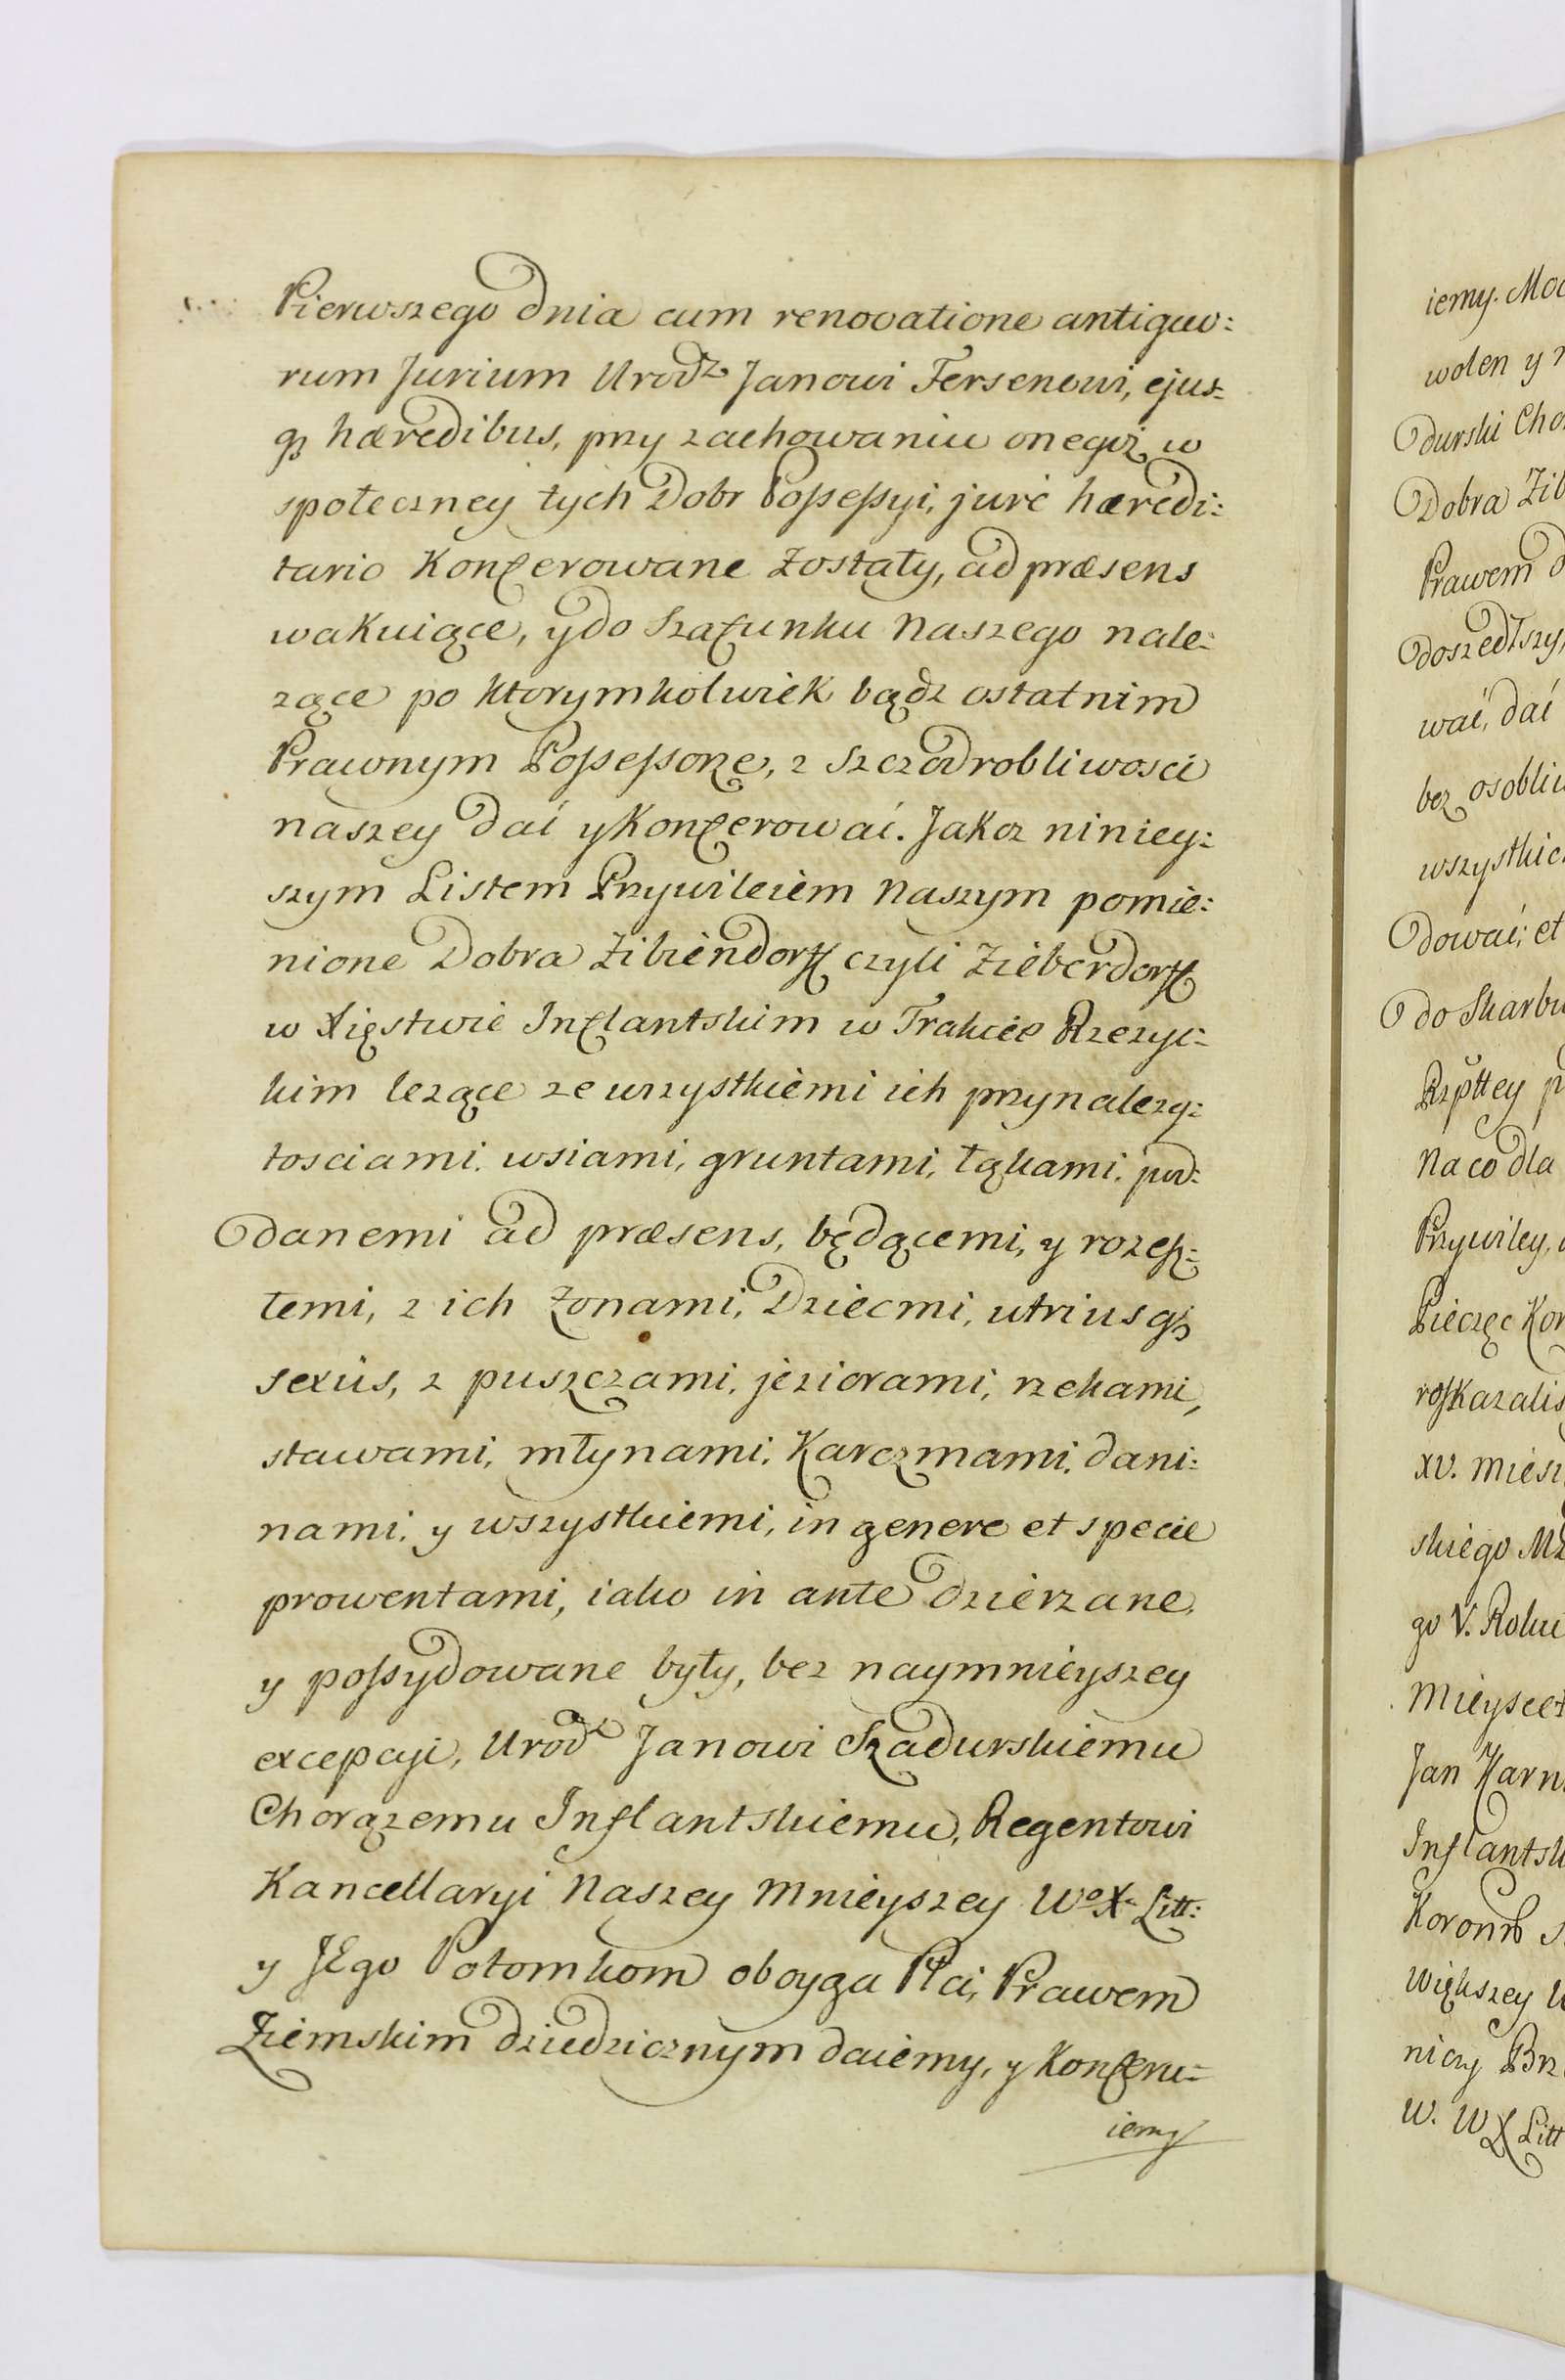 Pierwszego dnia cum renovatione antiquo:
rum Jurium Urodz Janowi Fersenowi, ejus:
q3 hæredibus, przy zachowaniu onegoż w
społeczney tych Dobr Possessyi, jure hæredi:
tario Konferowane zostały, ad præsens
wakuiące, y do Szafunku Naszego nale:
zące po ktorymkolwiek bądz ostatnim
Prawnym Possessorze, z Szczodrobliwosci
naszey dać y Konferować. Jakoz niniey:
szym Listem Przywileiem Naszym pomie:
nione Dobra Zibiendorff czyli Zieberdorff
w Xięstwie Inflantskim w Trakcie Rzezyc:
kim lezące ze wszystkiemi ich przynalezy:
tosciami. wsiami, gruntami, łąkami. pod:
danemi ad præsens, będącemi, y rozesz:
łemi, z ich Zonami, Dziecmi, utriusq3
sexûs, z puszczami, jeziorami, rzekami,
stawami, młynami, Karczmami, dani:
nami, y wszystkiemi, in genere et specie
prowentami, iako in ante dzierzane,
y possydowane były, bez naymnieyszey
excepcyi, Urodz Janowi Szadurskiemu
Chorązemu Inflantskiemu, Regentowi
Kancellaryi Naszey Mnieyszey Wo X. Litt:
y JEgo Potomkom oboyga Płci, Prawem
Ziemskim dziedzicznym daiemy, y Konferu:
iemy
iemy.
wolen y
durski Cho
Dobra Zib
Prawem
doszedłszy,
wać, dać
bez osobliw
wszystkie
dować; et
do Skarbu
Rzpttey
Na co dla
Przywiley,
Pieczęc Kor
roskazalis
XV. Mies
skiego
go V. Roku
Mieysce
Jan Karn
Inflantsk
Koronn
Większey
niczy Brz
W. WX Litt